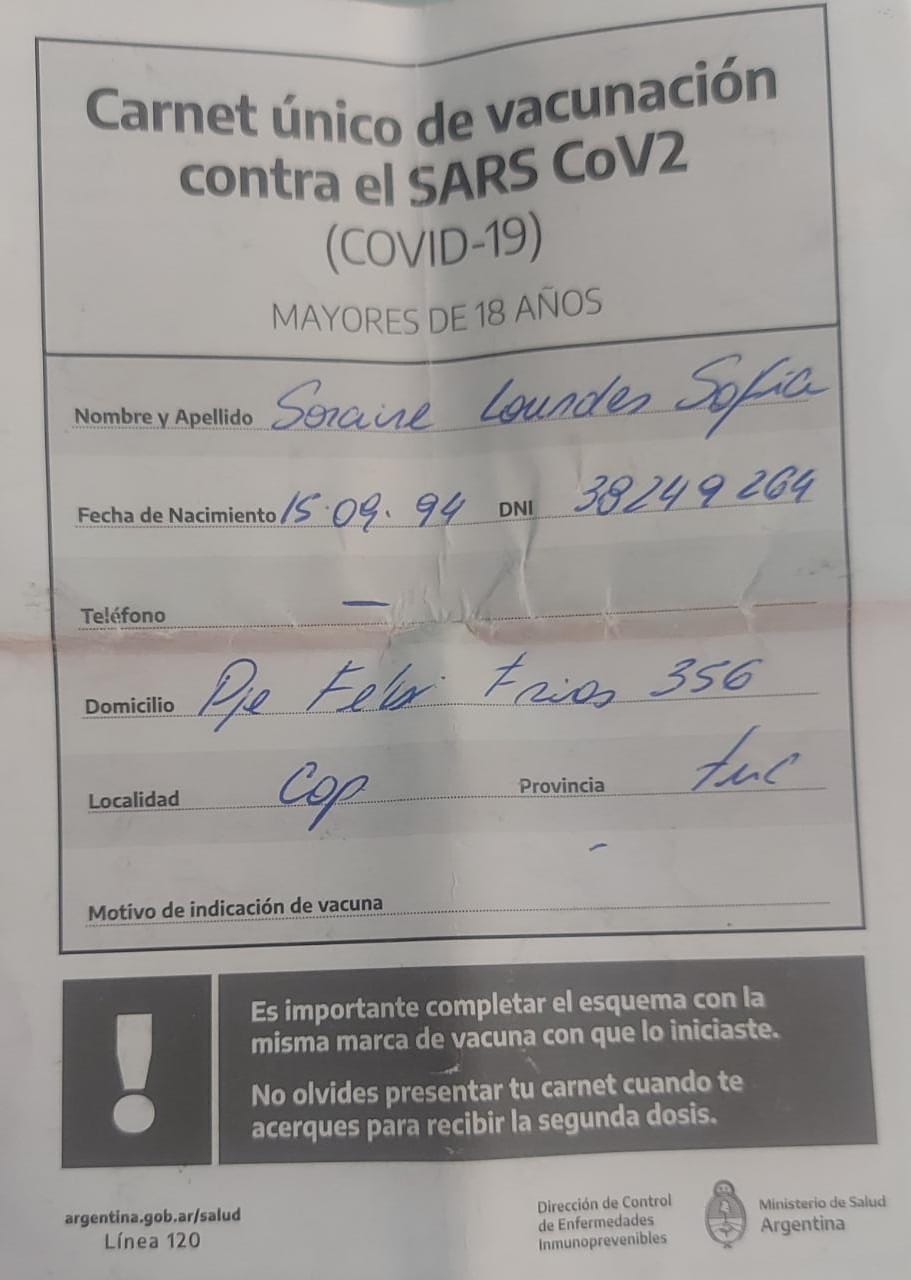 Carnet único de vacunación
contra el SARS CoV2
(COVID-19)
MAYORES DE 18 AÑOS
Nombre y Apellido Soraire Lourdes Sofia
Fecha de Nacimiento 15.09.94 DNI 38249264
Teléfono —
Domicilio Pje Felix Frias 356
Localidad Cop Provincia tuc
-
Motivo de indicación de vacuna
Es importante completar el esquema con la
misma marca de vacuna con que lo iniciaste.
No olvides presentar tu carnet cuando te
acerques para recibir la segunda dosis.
argentina.gob.ar/salud
Línea 120
Dirección de Control
de Enfermedades
Inmunoprevenibles
Ministerio de Salud
Argentina